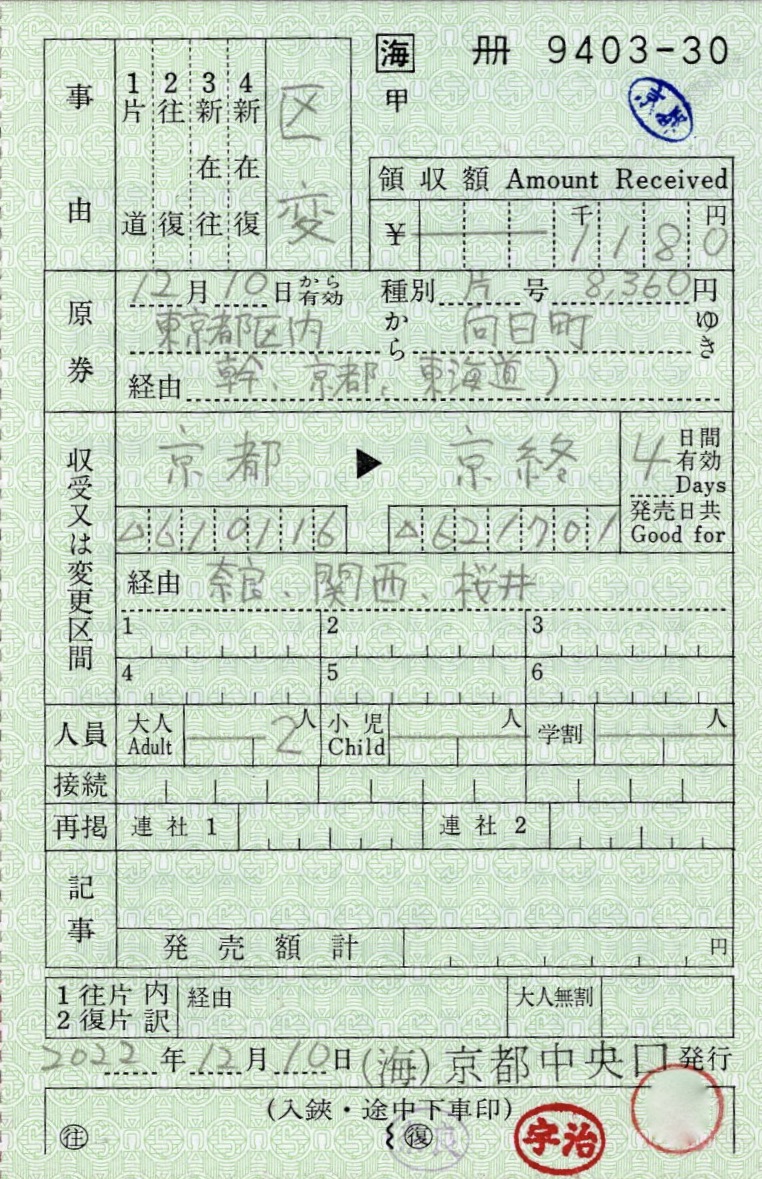 海 冊 9403-30
甲
京都
事由
1片道
2往復
3新在往
4新在復
区変
領収額 Amount Received
¥ 千 円
1180
原券
12月10日から有効 種別 片 号 8,360円
東京都区内 から 向日町 ゆき
経由 幹、京都、東海道)
収受又は変更区間
京都 ▶ 京終
4日間有効 Days
発売日共 Good for
△610116 △621701
経由 奈良、関西、桜井
1 2 3
4 5 6
人員 大人 Adult 2人 小児 Child 人 学割 人
接続
再掲 連社1 連社2
記事
発売額計 円
1往片 2復片 内訳 経由 大人無割
2022年12月10日 (海)京都中央口発行
(入鋏・途中下車印)
㊟ ㊡
宇治